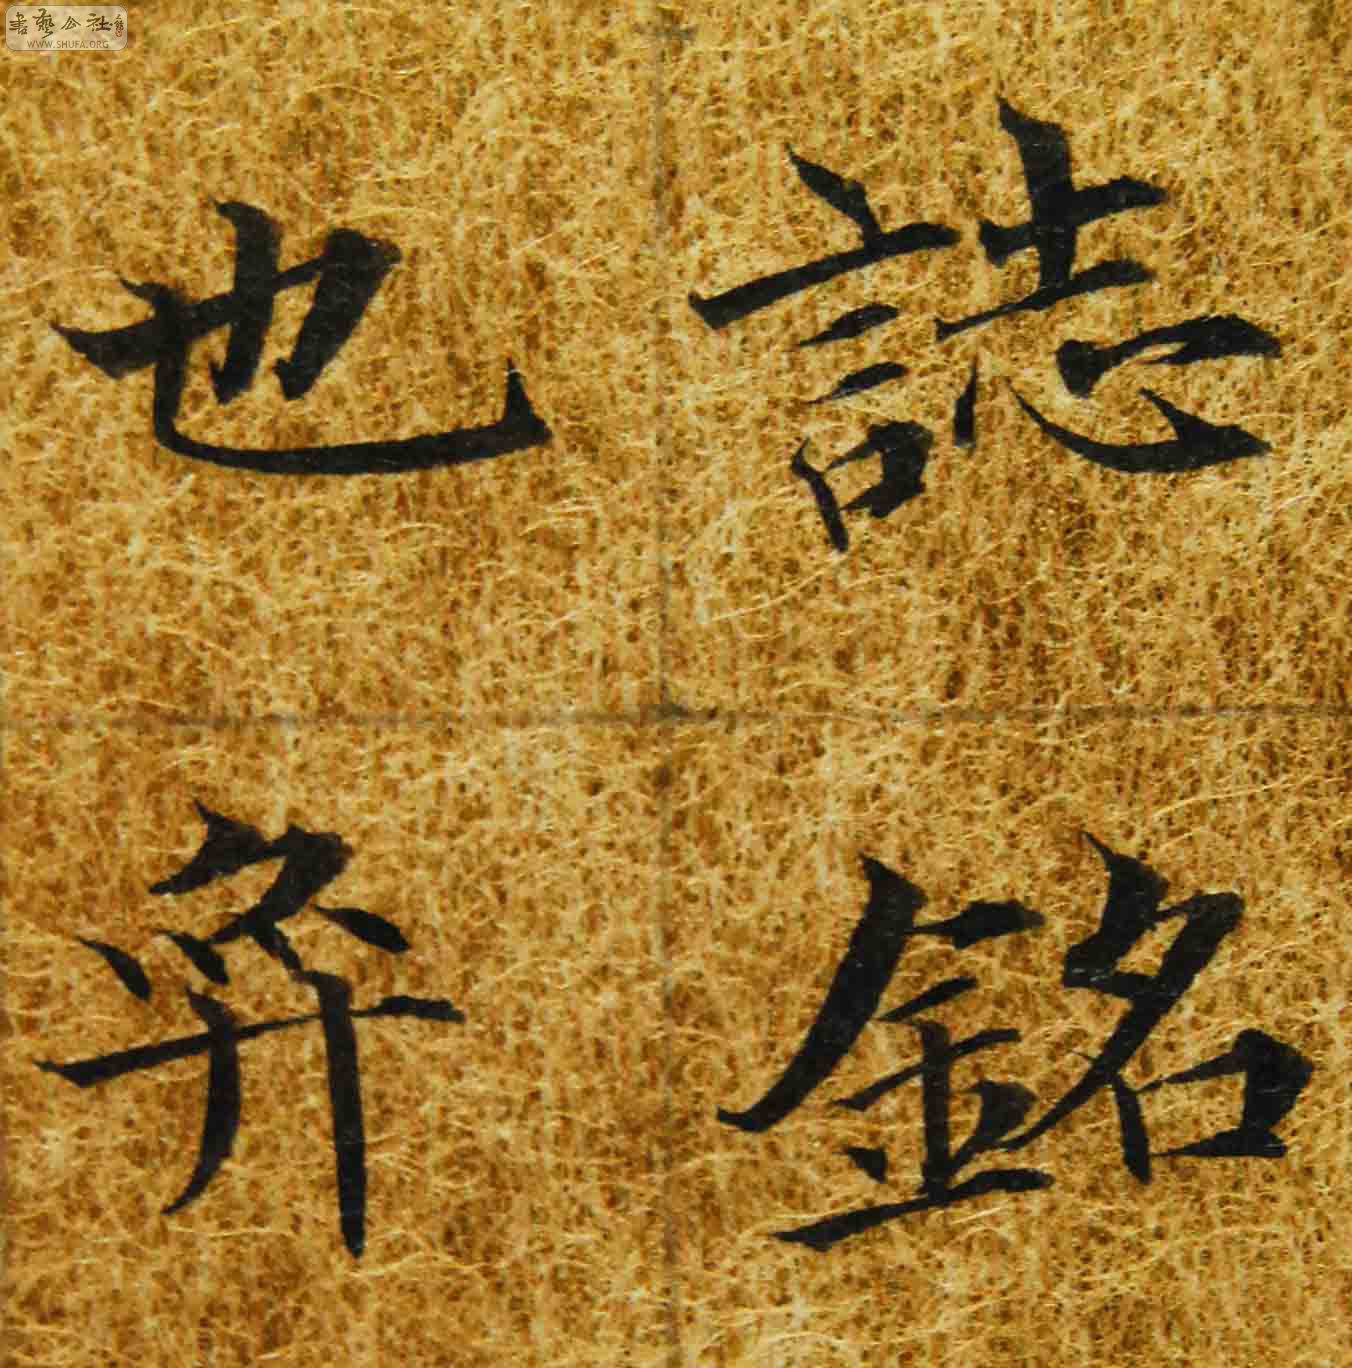 書藝公社
WWW.SHUFA.ORG
誌銘
也